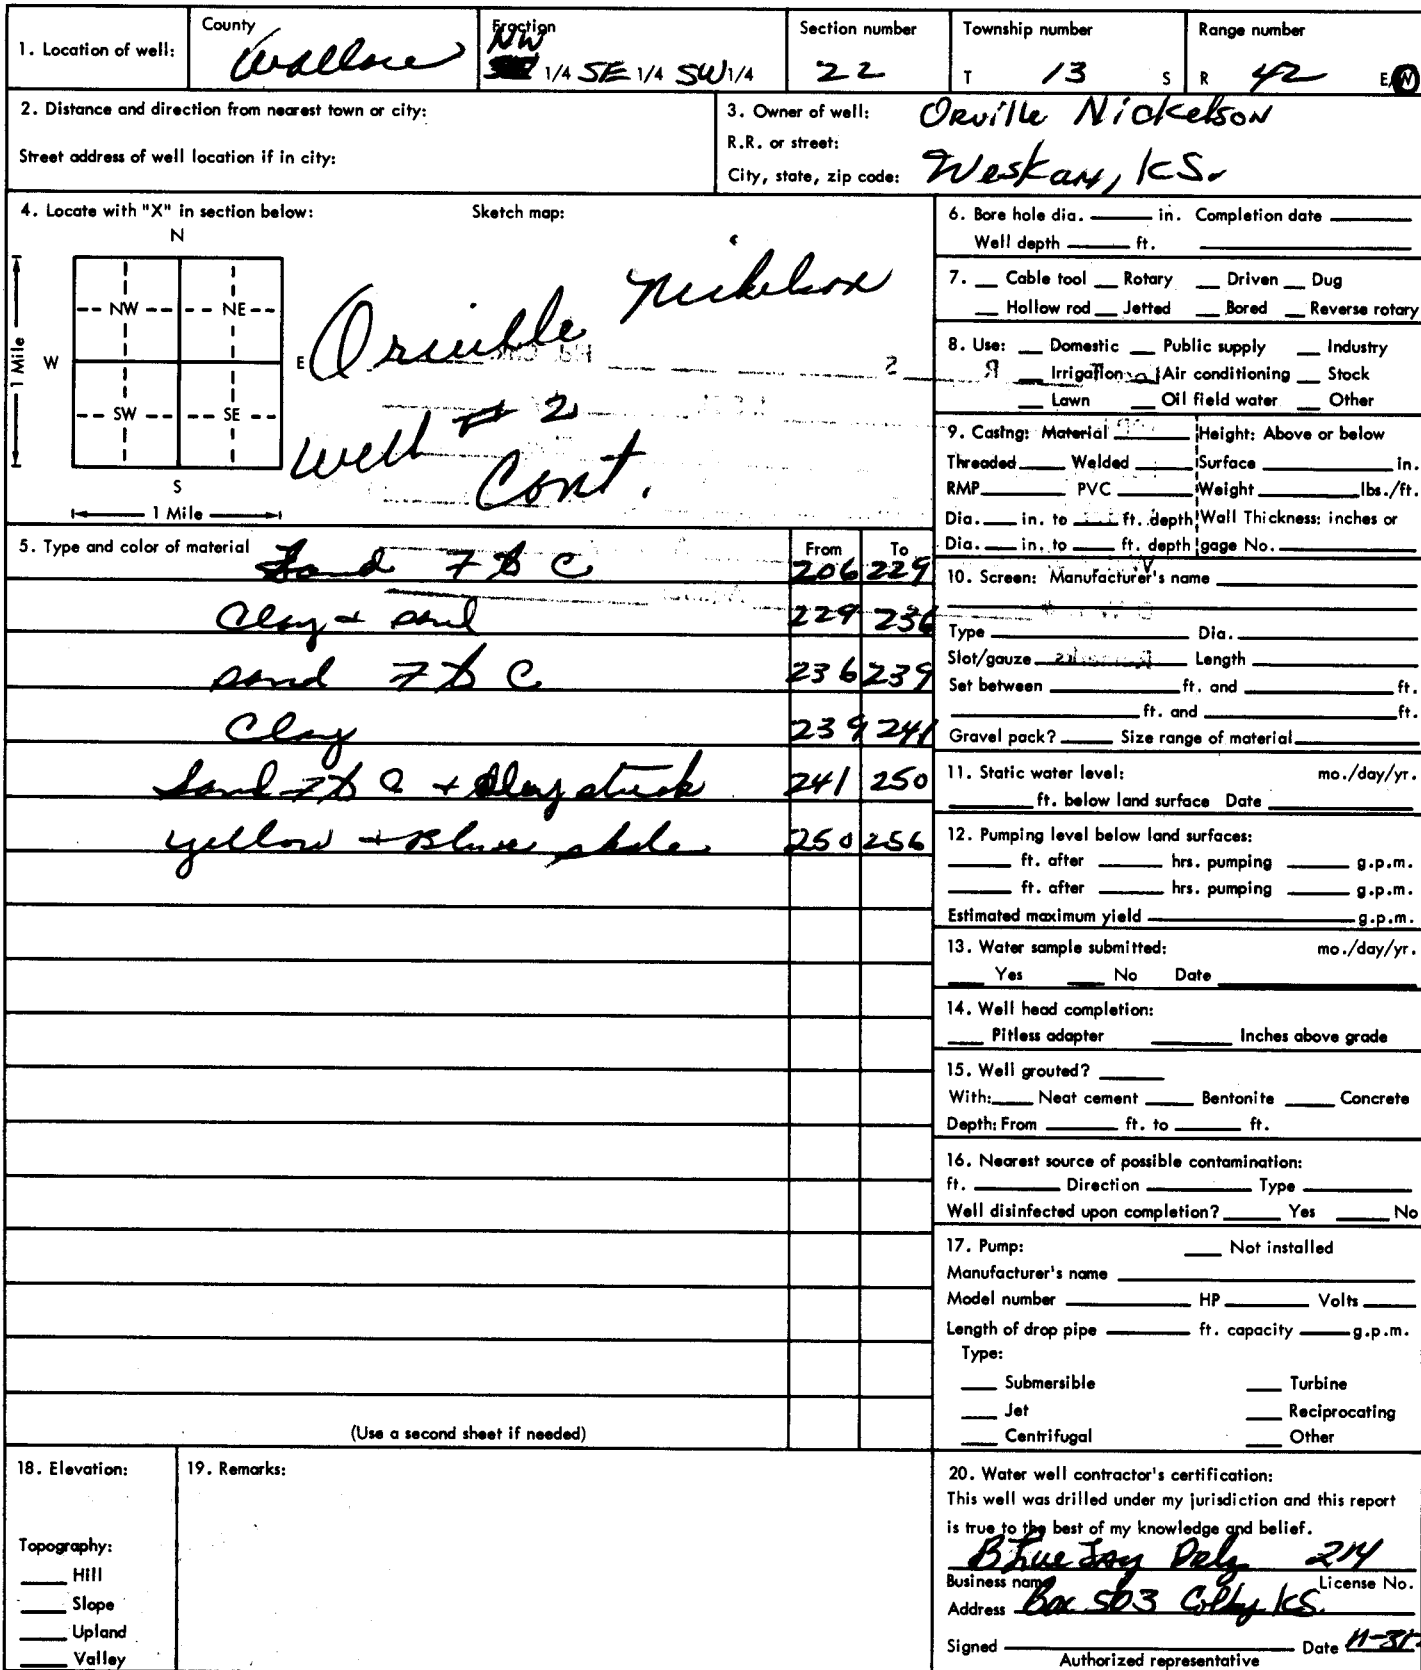 1. Location of well:
County
Wallace
Fraction
NW
1/4 SE 1/4 SW 1/4
Section number
22
Township number
T 13 S
Range number
R 42 E/W
2. Distance and direction from nearest town or city:
Street address of well location if in city:
3. Owner of well: Orville Nickelson
R.R. or street:
City, state, zip code: Weskan, KS.
4. Locate with "X" in section below:
Sketch map:
N
NW NE
W E
SW SE
S
1 Mile
1 Mile
Orville Nickelson
Well # 2
Cont.
5. Type and color of material From To
Sand F to C 206 229
Clay + sand 229 236
sand F to C 236 239
Clay 239 241
Sand F to C + Clay streak 241 250
yellow + Blue shale 250 256
(Use a second sheet if needed)
6. Bore hole dia. ____ in. Completion date ____
Well depth ____ ft. ____
7. __ Cable tool __ Rotary __ Driven __ Dug
__ Hollow rod __ Jetted __ Bored __ Reverse rotary
8. Use: __ Domestic __ Public supply __ Industry
__ Irrigation __ Air conditioning __ Stock
__ Lawn __ Oil field water __ Other
9. Casing: Material ____ Height: Above or below
Threaded ____ Welded ____ Surface ____ in.
RMP ____ PVC ____ Weight ____ lbs./ft.
Dia. ____ in. to ____ ft. depth Wall Thickness: inches or
Dia. ____ in. to ____ ft. depth gage No. ____
10. Screen: Manufacturer's name ____
Type ____ Dia. ____
Slot/gauze ____ Length ____
Set between ____ ft. and ____ ft.
____ ft. and ____ ft.
Gravel pack? ____ Size range of material ____
11. Static water level: mo./day/yr.
____ ft. below land surface Date ____
12. Pumping level below land surfaces:
____ ft. after ____ hrs. pumping ____ g.p.m.
____ ft. after ____ hrs. pumping ____ g.p.m.
Estimated maximum yield ____ g.p.m.
13. Water sample submitted: mo./day/yr.
____ Yes ____ No Date ____
14. Well head completion:
____ Pitless adapter ____ Inches above grade
15. Well grouted? ____
With: ____ Neat cement ____ Bentonite ____ Concrete
Depth: From ____ ft. to ____ ft.
16. Nearest source of possible contamination:
ft. ____ Direction ____ Type ____
Well disinfected upon completion? ____ Yes ____ No
17. Pump: ____ Not installed
Manufacturer's name ____
Model number ____ HP ____ Volts ____
Length of drop pipe ____ ft. capacity ____ g.p.m.
Type:
____ Submersible ____ Turbine
____ Jet ____ Reciprocating
____ Centrifugal ____ Other
18. Elevation:
Topography:
____ Hill
____ Slope
____ Upland
____ Valley
19. Remarks:
20. Water well contractor's certification:
This well was drilled under my jurisdiction and this report
is true to the best of my knowledge and belief.
Blue Jay Drlg 214
Business name License No.
Address Box 503 Colby KS.
Signed ____ Date
Authorized representative